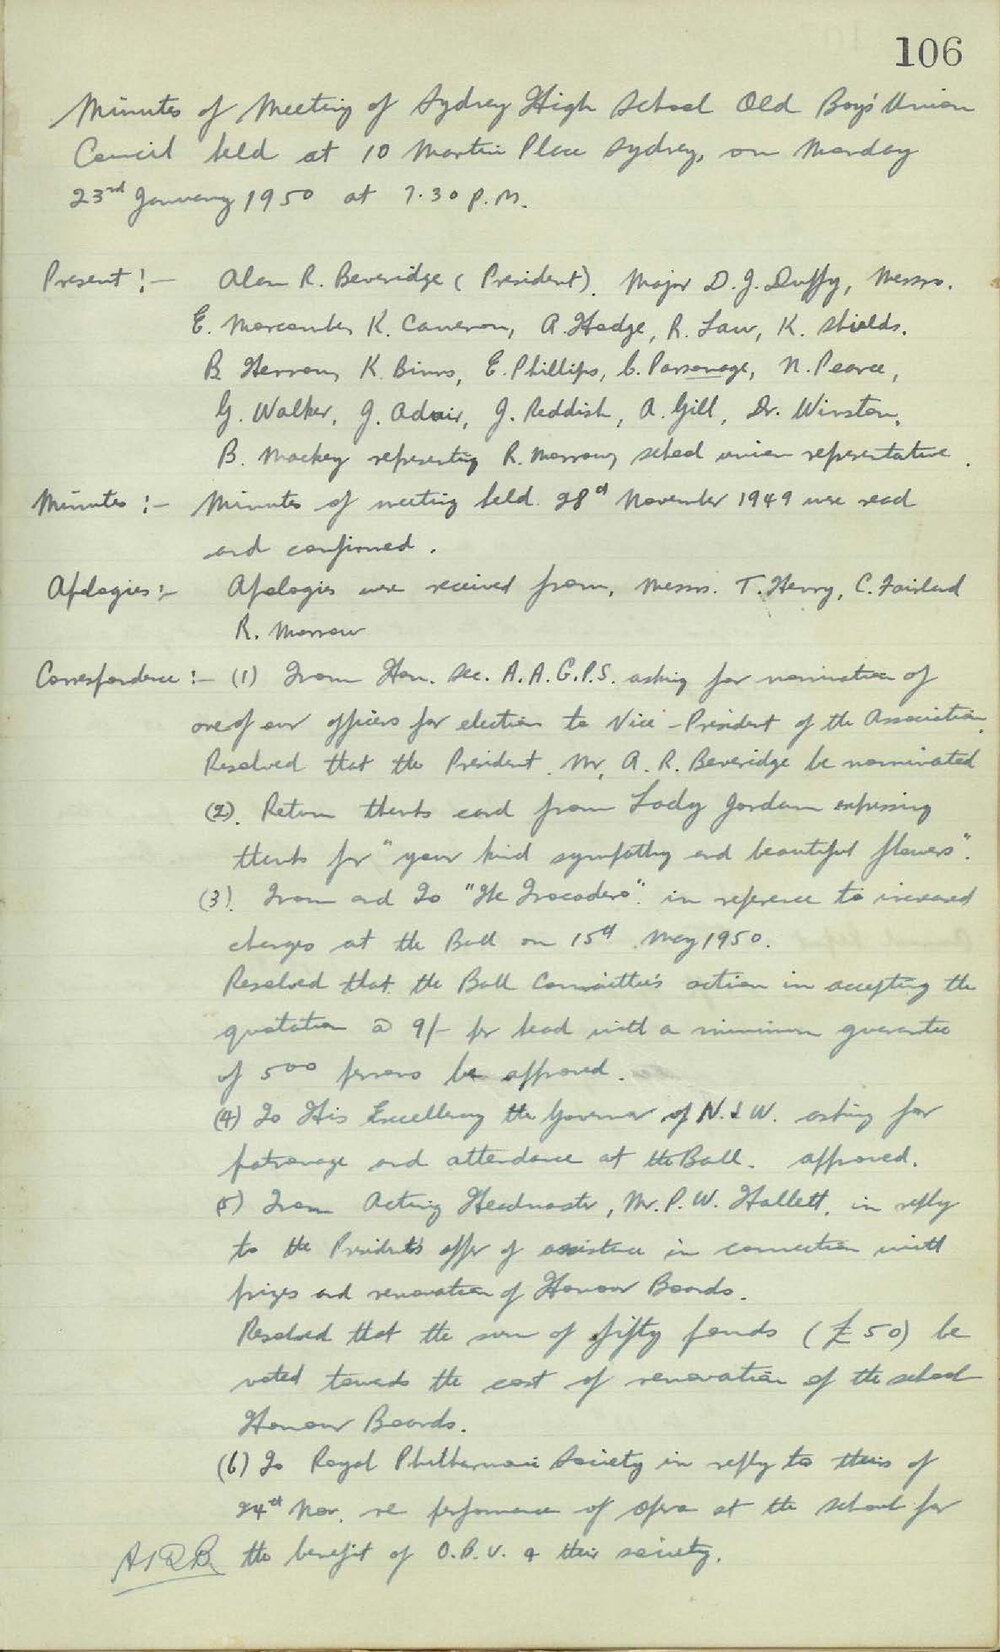 106
Minutes of Meeting of Sydney High School Old Boys' Union
Council held at 10 Martin Place Sydney, on Monday
23rd January 1950 at 7.30 p.m.
Present :- Alan R. Beveridge (President). Major D. J. Duffy, Messrs.
E. K. Cameron, A. Hodge, R. Law, K. Shields.
B. Herron, K. Binns, E. Phillips, C. Parsonage, N. Pearce,
G. Walker, J. Adair, J. Reddish, A. Gill, Dr. Winston,
B. Mackey representing R. Morrow, school union representative.
Minutes :- Minutes of meeting held 28th November 1949 were read
and confirmed.
Apologies :- Apologies were received from, Messrs. T. Henry, C. Fairland
R. Morrow
Correspondence :- (1) From Hon. Sec. A.A.G.P.S. asking for nomination of
one of our officers for election to Vice-President of the Association.
Resolved that the President Mr. A. R. Beveridge be nominated
(2). Return thanks card from Lady Jordan expressing
thanks for "your kind sympathy and beautiful flowers".
(3). From and To "The Trocadero". in reference to increased
charges at the Ball on 15th May 1950.
Resolved that the Ball Committee's action in accepting the
quotation @ 9/- per head with a minimum guarantee
of 500 persons be approved.
(4) To His Excellency the Governor of N.S.W. asking for
patronage and attendance at the Ball. approved.
(5) From Acting Headmaster, Mr. P. W. Hallett, in reply
to the President's offer of assistance in connection with
prizes and renovation of Honour Boards.
Resolved that the sum of fifty pounds (£50) be
voted towards the cost of renovation of the school
Honour Boards.
(6) To Royal Philharmonic Society in reply to theirs of
24th Nov. re performance of Opera at the school for
the benefit of O.B.U. & their society.
ARB